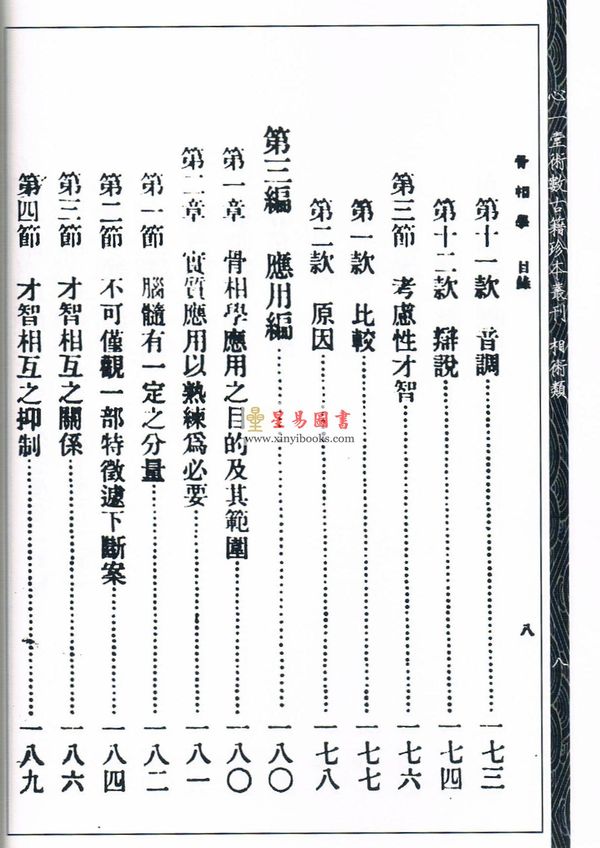 心一堂術數古籍珍本叢刊 相術類
八
骨相學 目錄
八
第十一款 音調 一七三
第十二款 辯說 一七四
第三節 考慮性才智 一七六
第一款 比較 一七七
第二款 原因 一七八
第三編 應用編 一八〇
第一章 骨相學應用之目的及其範圍 一八〇
第二章 實質應用以熟練爲必要 一八一
第一節 腦髓有一定之分量 一八二
第二節 不可僅觀一部特徵遽下斷案 一八四
第三節 才智相互之關係 一八六
第四節 才智相互之抑制 一八九
星易圖書
www.xinyibooks.com